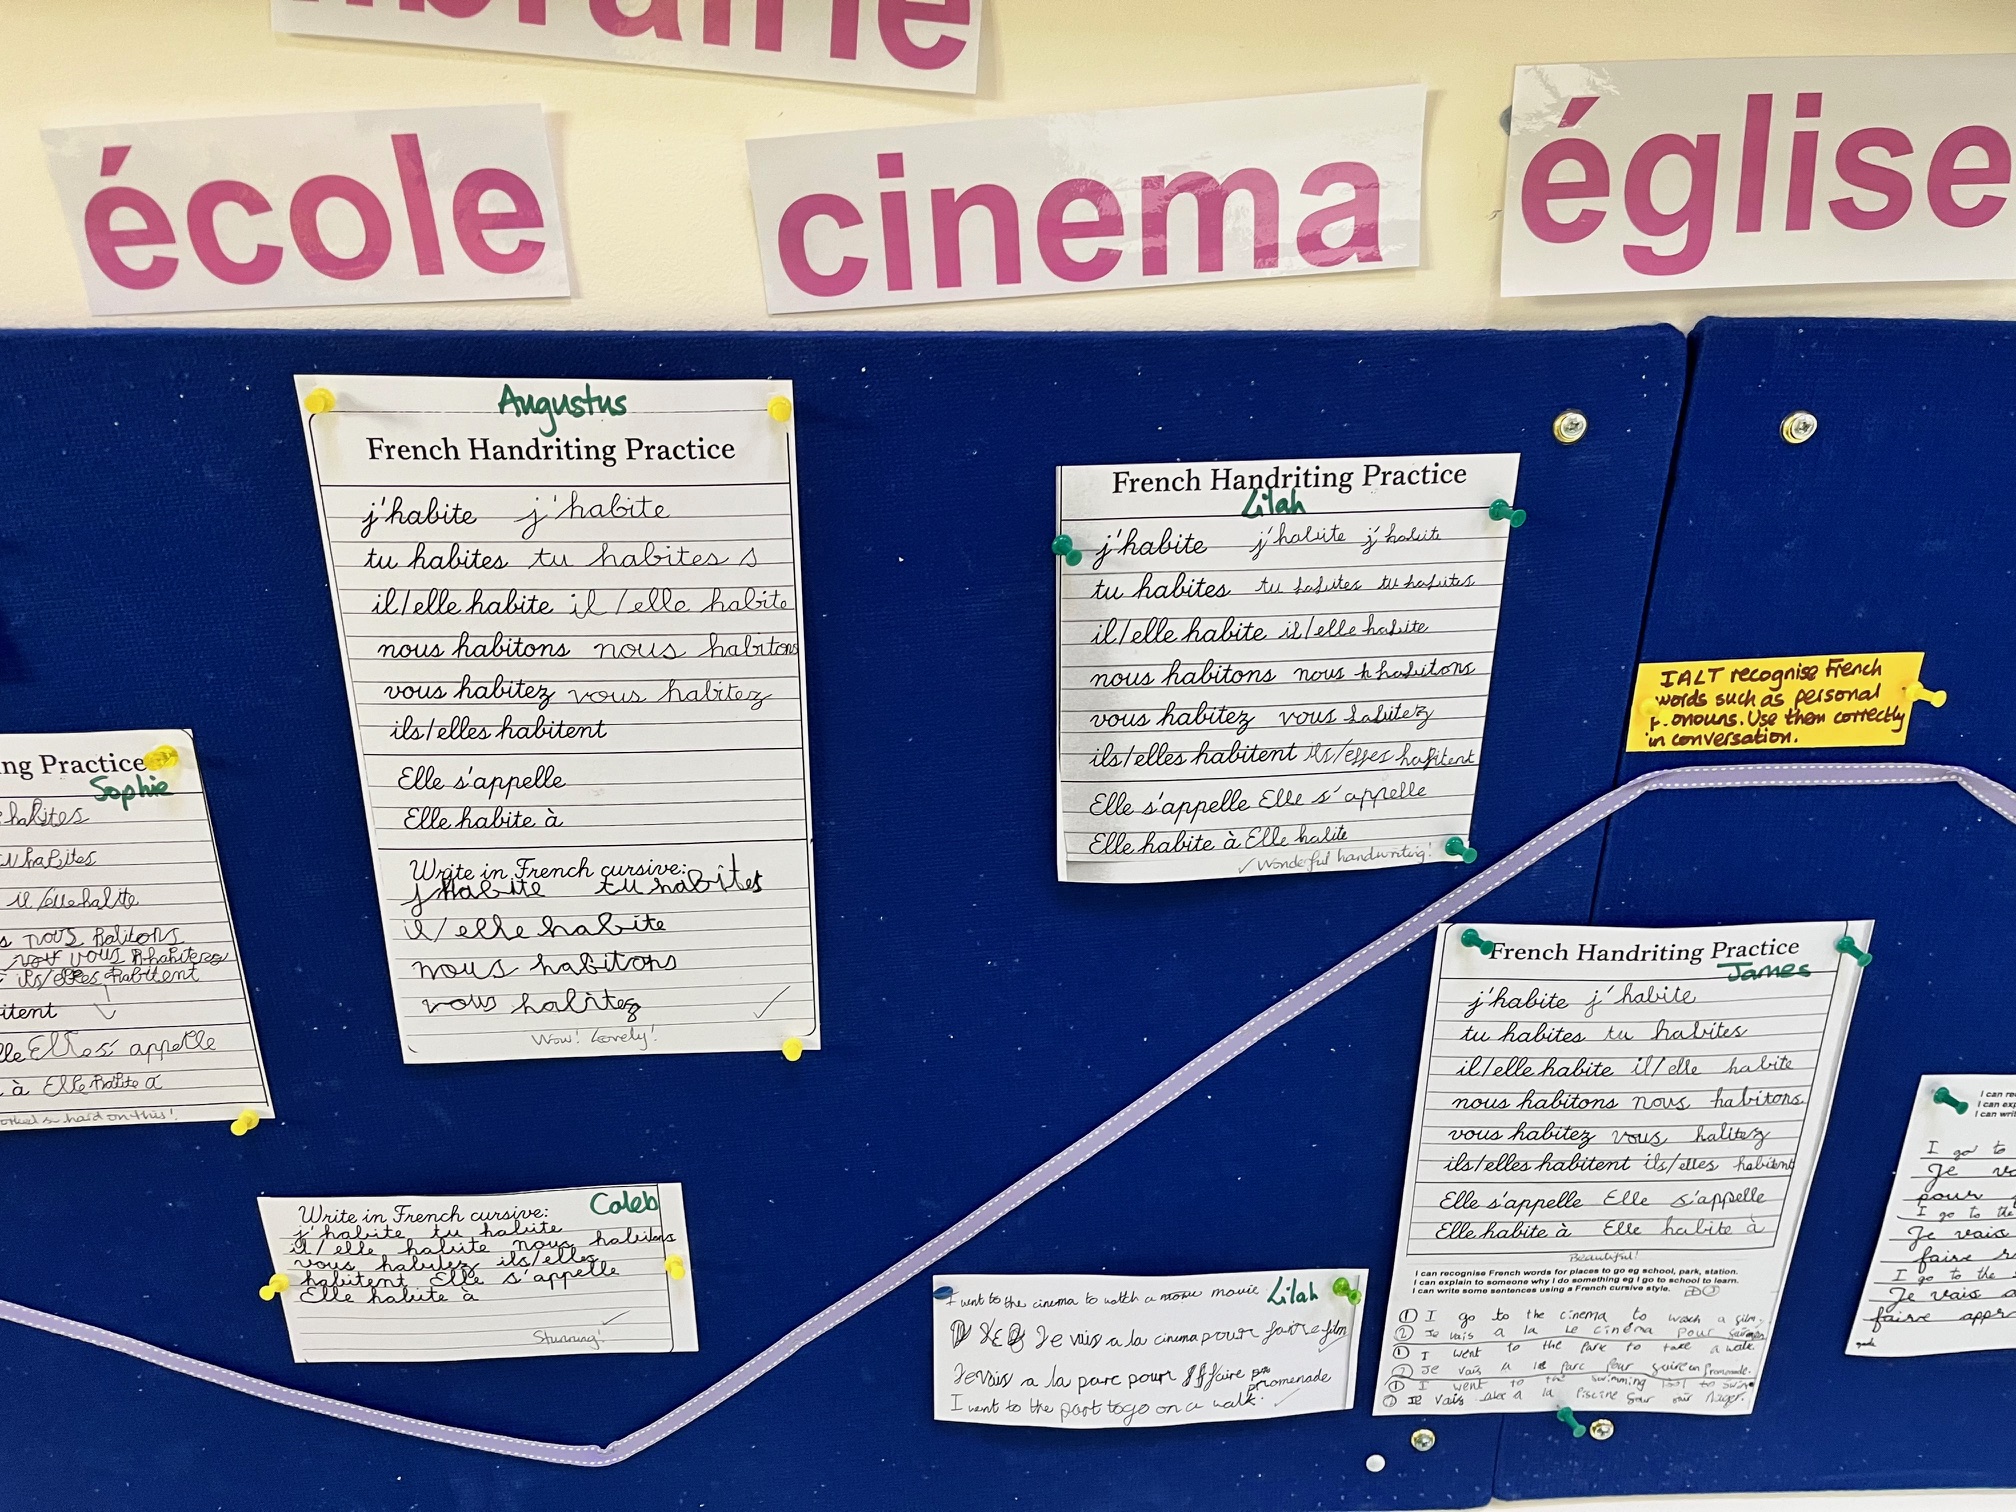 école
cinema
église
Augustus
French Handriting Practice
j'habite j'habite
tu habites tu habites s
il/elle habite il/elle habite
nous habitons nous habitons
vous habitez vous habitez
ils/elles habitent
Elle s'appelle
Elle habite à
Write in French cursive:
j'habite tu habites
il/elle habite
nous habitons
vous habitez
Wow! Lovely!
French Handriting Practice
Lilah
j'habite j'habite j'habite
tu habites tu habites tu habites
il/elle habite il/elle habite
nous habitons nous habitons
vous habitez vous habitez
ils/elles habitent ils/elles habitent
Elle s'appelle Elle s'appelle
Elle habite à Elle habite
Wonderful handwriting!
IALT recognise French
words such as personal
pronouns. Use them correctly
in conversation.
Practice
Sophie
habites
tu habites
il/elle habite
nous habitons
vous habitez
ils/elles habitent
Elle s'appelle
à Elle habite a
hard on this!
Caleb
Write in French cursive:
j'habite tu habite
il/elle habite nous habitons
vous habitez ils/elles
habitent Elle s'appelle
Elle habite à
Stunning!
I went to the cinema to watch a movie Lilah
Je vais a la cinema pour faire film
Je vais a la parc pour faire
promenade
I went to the part to go on a walk.
French Handriting Practice
James
j'habite j'habite
tu habites tu habites
il/elle habite il/elle habite
nous habitons nous habitons
vous habitez vous habitez
ils/elles habitent ils/elles habitent
Elle s'appelle Elle s'appelle
Elle habite à Elle habite à
Beautiful!
I can recognise French words for places to go eg school, park, station.
I can explain to someone why I do something eg I go to school to learn.
I can write some sentences using a French cursive style.
① I go to the cinema to wach a film.
② Je vais a la le cinéma pour
① I went to the Park to take a walk.
② Je vais a le Parc pour promenade.
① I went to the swimming to swim
② Je vais a la Piscine nager.
I can
I can
I can
I go to
Je
pour
I go to the
Je vais
faire
I go to the
Je vais
faire